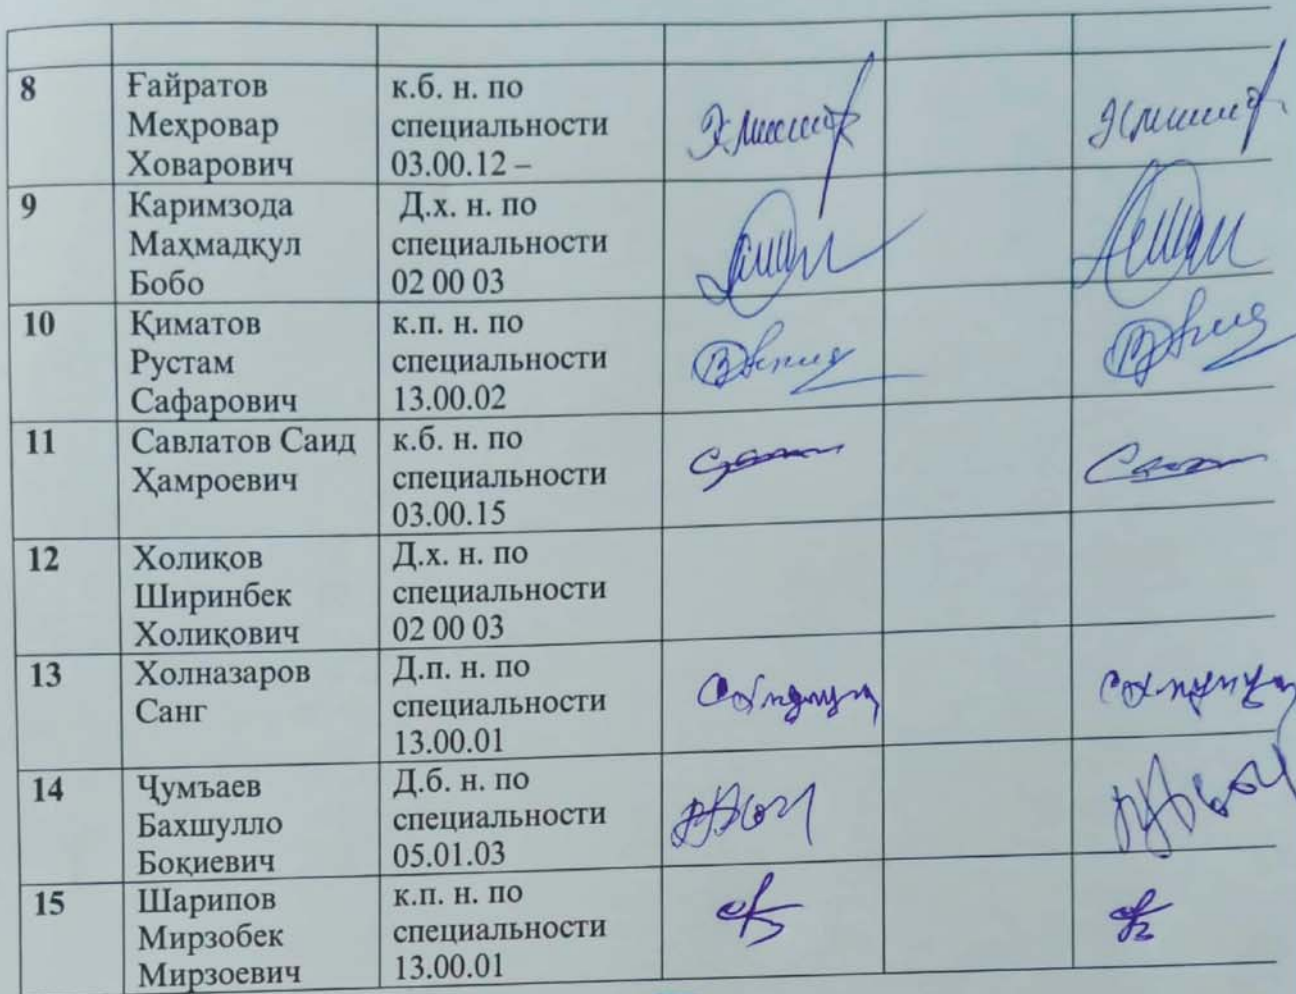 8
Ғайратов
Меҳровар
Ховарович
к.б. н. по
специальности
03.00.12 –
9
Каримзода
Маҳмадқул
Бобо
Д.х. н. по
специальности
02 00 03
10
Қиматов
Рустам
Сафарович
к.п. н. по
специальности
13.00.02
11
Савлатов Саид
Ҳамроевич
к.б. н. по
специальности
03.00.15
12
Холиқов
Ширинбек
Холиқович
Д.х. н. по
специальности
02 00 03
13
Холназаров
Санг
Д.п. н. по
специальности
13.00.01
14
Ҷумъаев
Бахшулло
Боқиевич
Д.б. н. по
специальности
05.01.03
15
Шарипов
Мирзобек
Мирзоевич
к.п. н. по
специальности
13.00.01